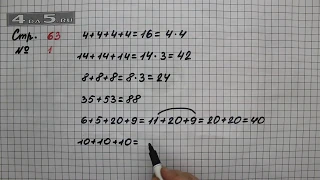 4DA5.RU
Стр. 63
№ 1
4+4+4+4=16=4·4
14+14+14=14·3=42
8+8+8=8·3=24
35+53=88
6+5+20+9=11+20+9=20+20=40
10+10+10=